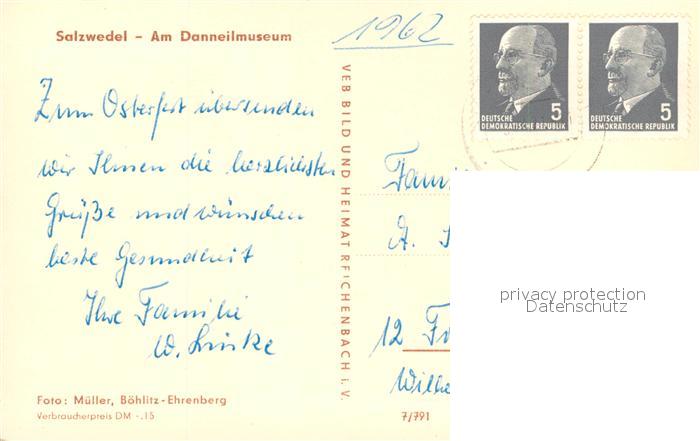 Salzwedel - Am Danneilmuseum
1962
5
DEUTSCHE
DEMOKRATISCHE REPUBLIK
5
DEUTSCHE
DEMOKRATISCHE REPUBLIK
Zum Osterfest übersenden
wir Ihnen die herzlichsten
Grüße und wünschen
beste Gesundheit
Ihre Familie
W. Linke
VEB BILD UND HEIMAT REICHENBACH i. V.
A.
12
privacy protection
Datenschutz
Foto: Müller, Böhlitz-Ehrenberg
Verbraucherpreis DM -.15
7/791